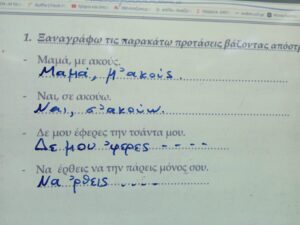 1. Ξαναγράφω τις παρακάτω προτάσεις βάζοντας απόστ
- Μαμά, με ακούς.
Μαμά, μ' ακούς.
- Ναι, σε ακούω.
Ναι, σ' ακούω.
- Δε μου έφερες την τσάντα μου.
Δε μου 'φερες - - - -
- Να έρθεις να την πάρεις μόνος σου.
Να 'ρθεις - - - -